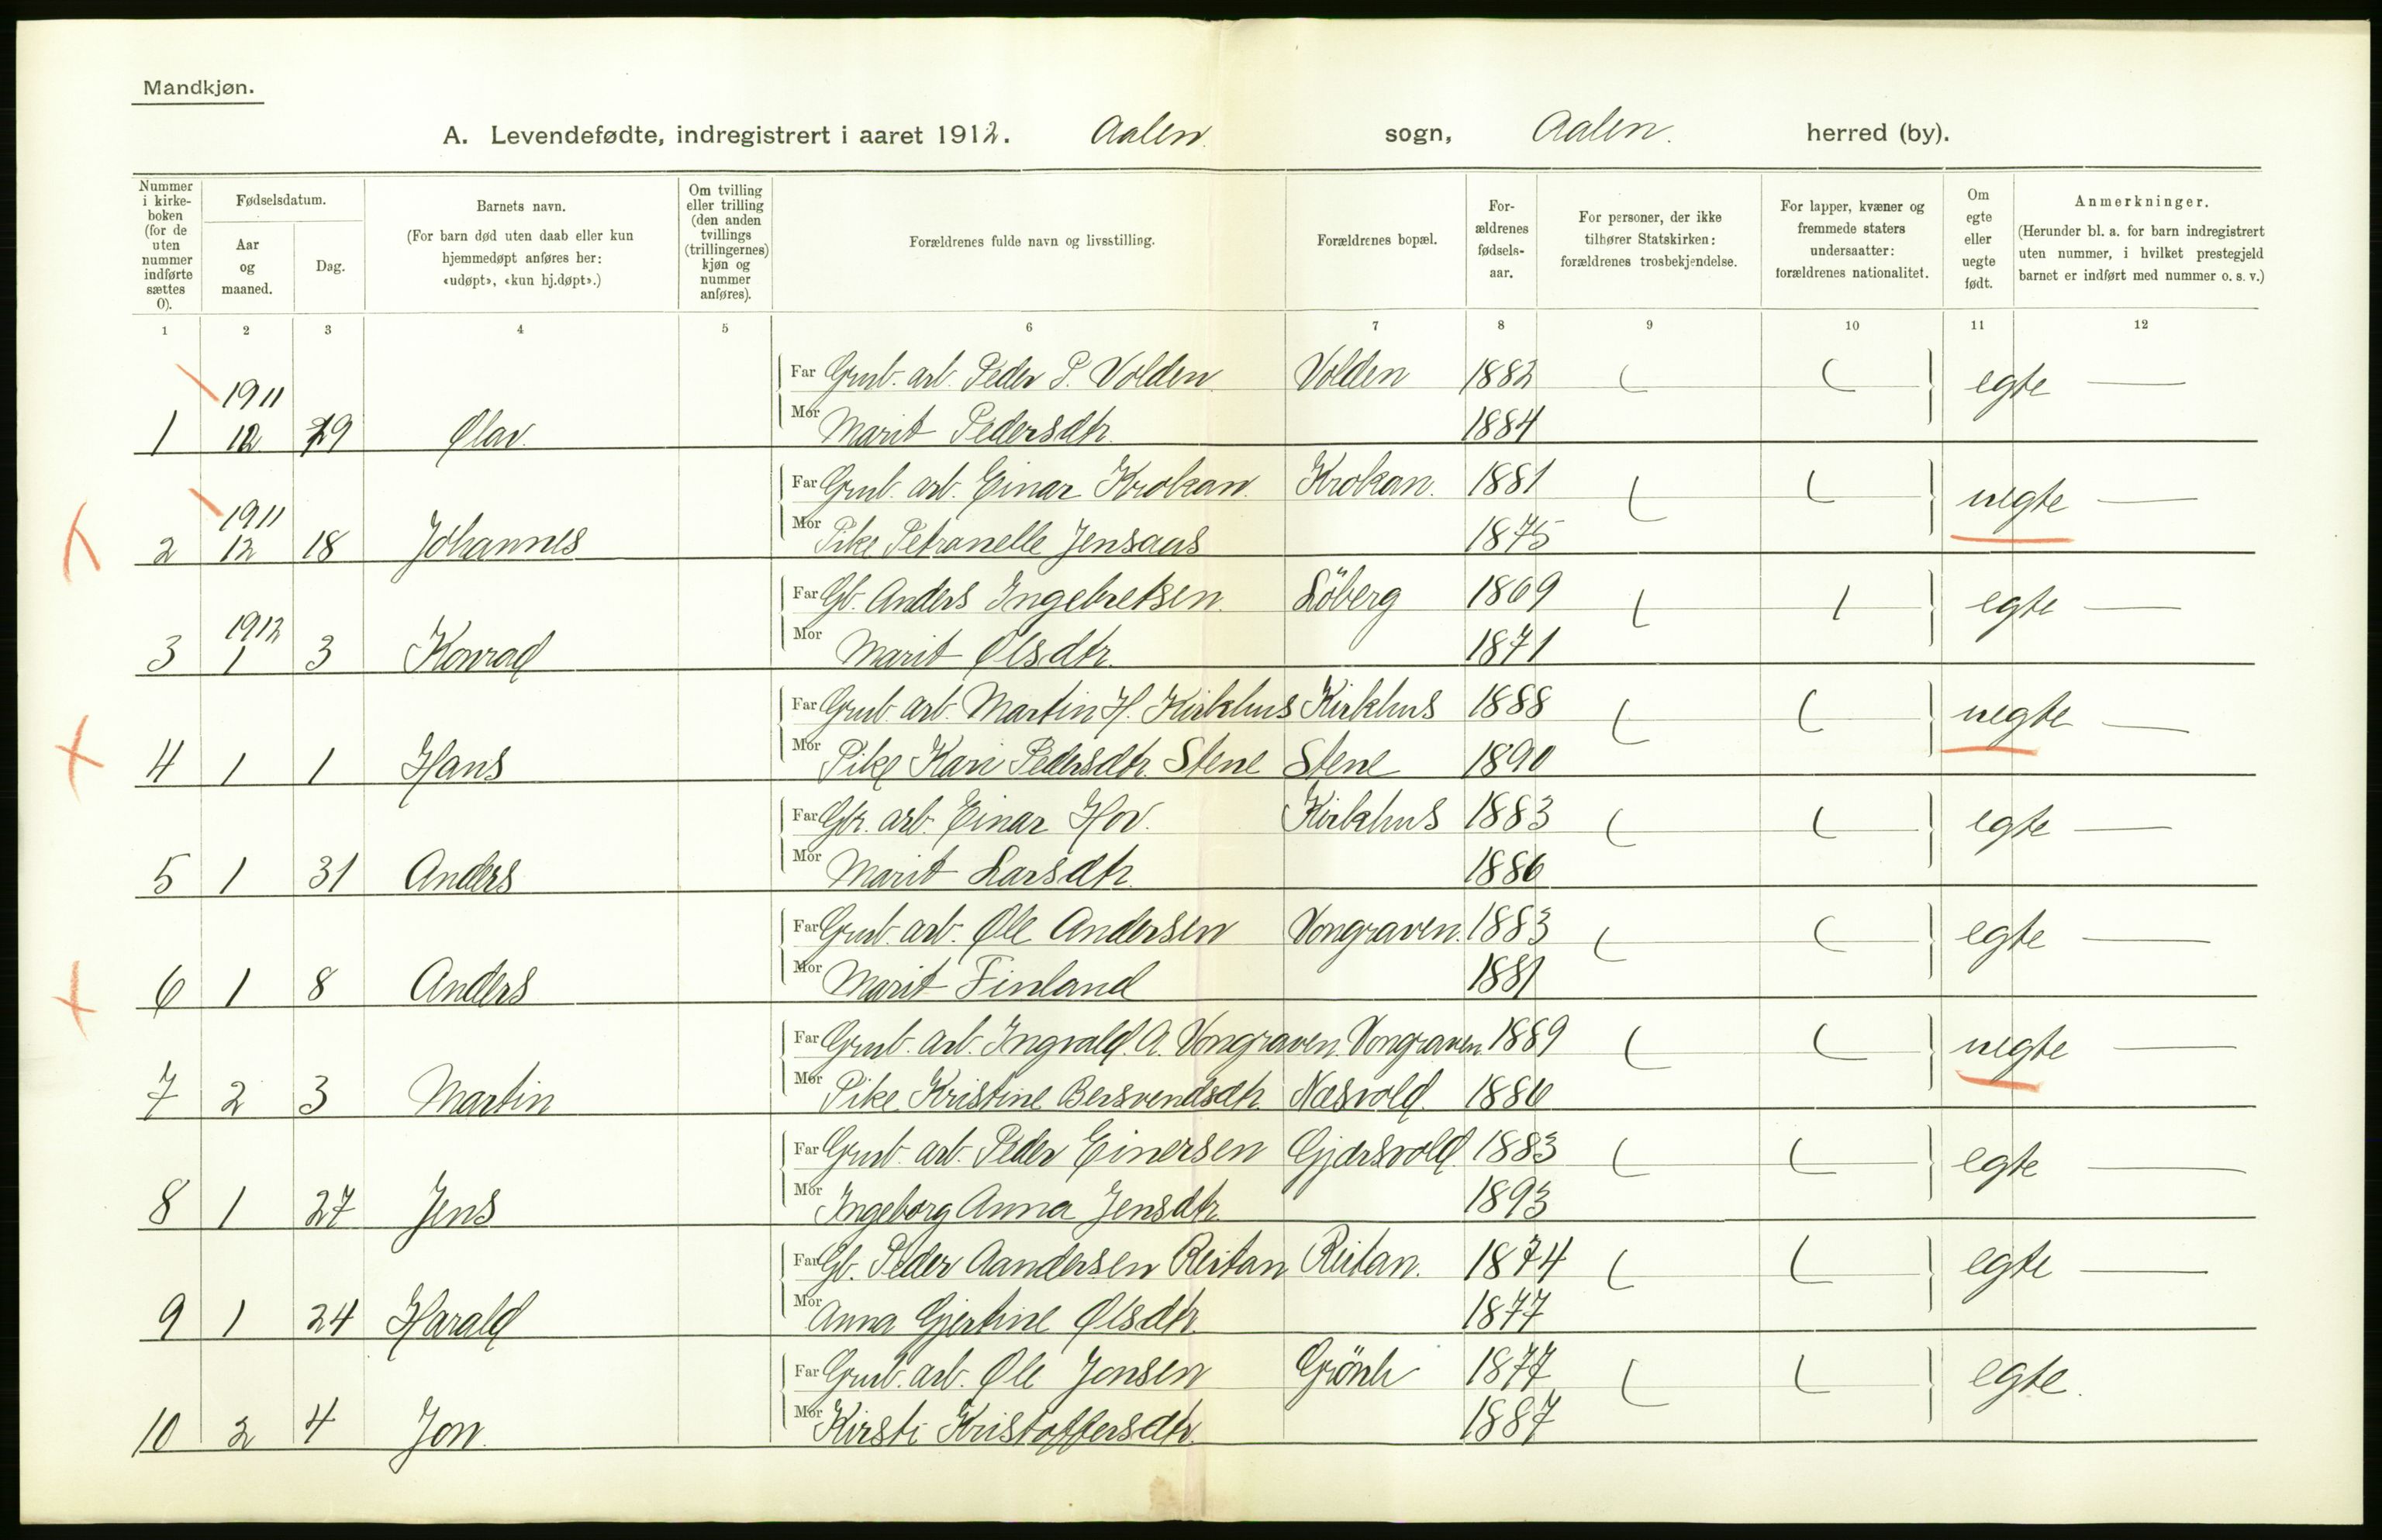 Mandkjøn.
A. Levendefødte, indregistrert i aaret 1912. Aalen. sogn, Aalen. herred (by).
Nummer i kirke-boken (for de uten nummer indførte sættes 0).
Fødselsdatum.
Aar og maaned.
Dag.
Barnets navn.
(For barn død uten daab eller kun hjemmedøpt anføres her: «udøpt», «kun hj.døpt».)
Om tvilling eller trilling (den anden tvillings (trillingernes) kjøn og nummer anføres).
Forældrenes fulde navn og livsstilling.
Forældrenes bopæl.
For-ældrenes fødsels-aar.
For personer, der ikke tilhører Statskirken: forældrenes trosbekjendelse.
For lapper, kvæner og fremmede staters undersaatter: forældrenes nationalitet.
Om egte eller uegte født.
Anmerkninger.
(Herunder bl. a. for barn indregistrert uten nummer, i hvilket prestegjeld barnet er indført med nummer o. s. v.)
1 2 3 4 5 6 7 8 9 10 11 12
1911 Far Grub. arb. Peder P. Volden Volden 1882 egte
1 12 29 Olav. Mor Marit Pedersdtr. 1884
1911 Far Grub. arb. Einar Krokan. Krokan. 1881 uegte
2 12 18 Johannes Mor Pike Petranelle Jensaas 1875
1912 Far Gb. Anders Ingebretsen. Löberg 1869 egte
3 1 3 Konrad Mor Marit Olsdtr. 1871
Far Grub. arb. Martin H. Kirkhus Kirkhus 1888 uegte
4 1 1 Hans Mor Pike Kari Pedersdtr. Stene Stene 1890
Far Gr. arb. Einar Hov. Kirkhus 1883 egte
5 1 31 Anders Mor Marit Larsdtr. 1886
Far Grub. arb. Ole Andersen Vongraven. 1883 egte
6 1 8 Anders Mor Marit Finland 1881
Far Grub. arb. Ingvald. A. Vongraven. Vongraven 1889 uegte
7 2 3 Martin Mor Pike Kristine Bersvendsdtr. Næsvold. 1886
Far Grub. arb. Peder Einersen Gjærsvold. 1883 egte
8 1 27 Jens Mor Ingeborg Anna Jensdtr. 1893
Far Gb. Peder Aandersen Reitan Reitan. 1874 egte
9 1 24 Harald Mor Anna Gjertine Olsdtr. 1877
Far Grub. arb. Ole Jonsen 1877 egte.
10 2 4 Jon. Mor Kirsti Kristoffersdtr. 1887